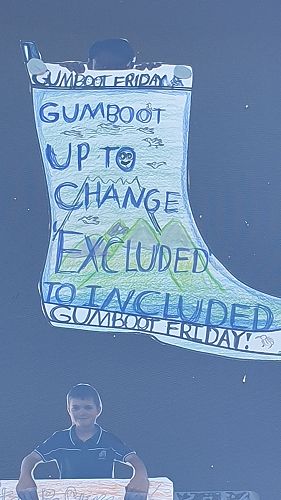 GUMBOOT FRIDAY
GUMBOOT
UP TO
CHANGE
EXCLUDED
TO INCLUDED
GUMBOOT FRIDAY!